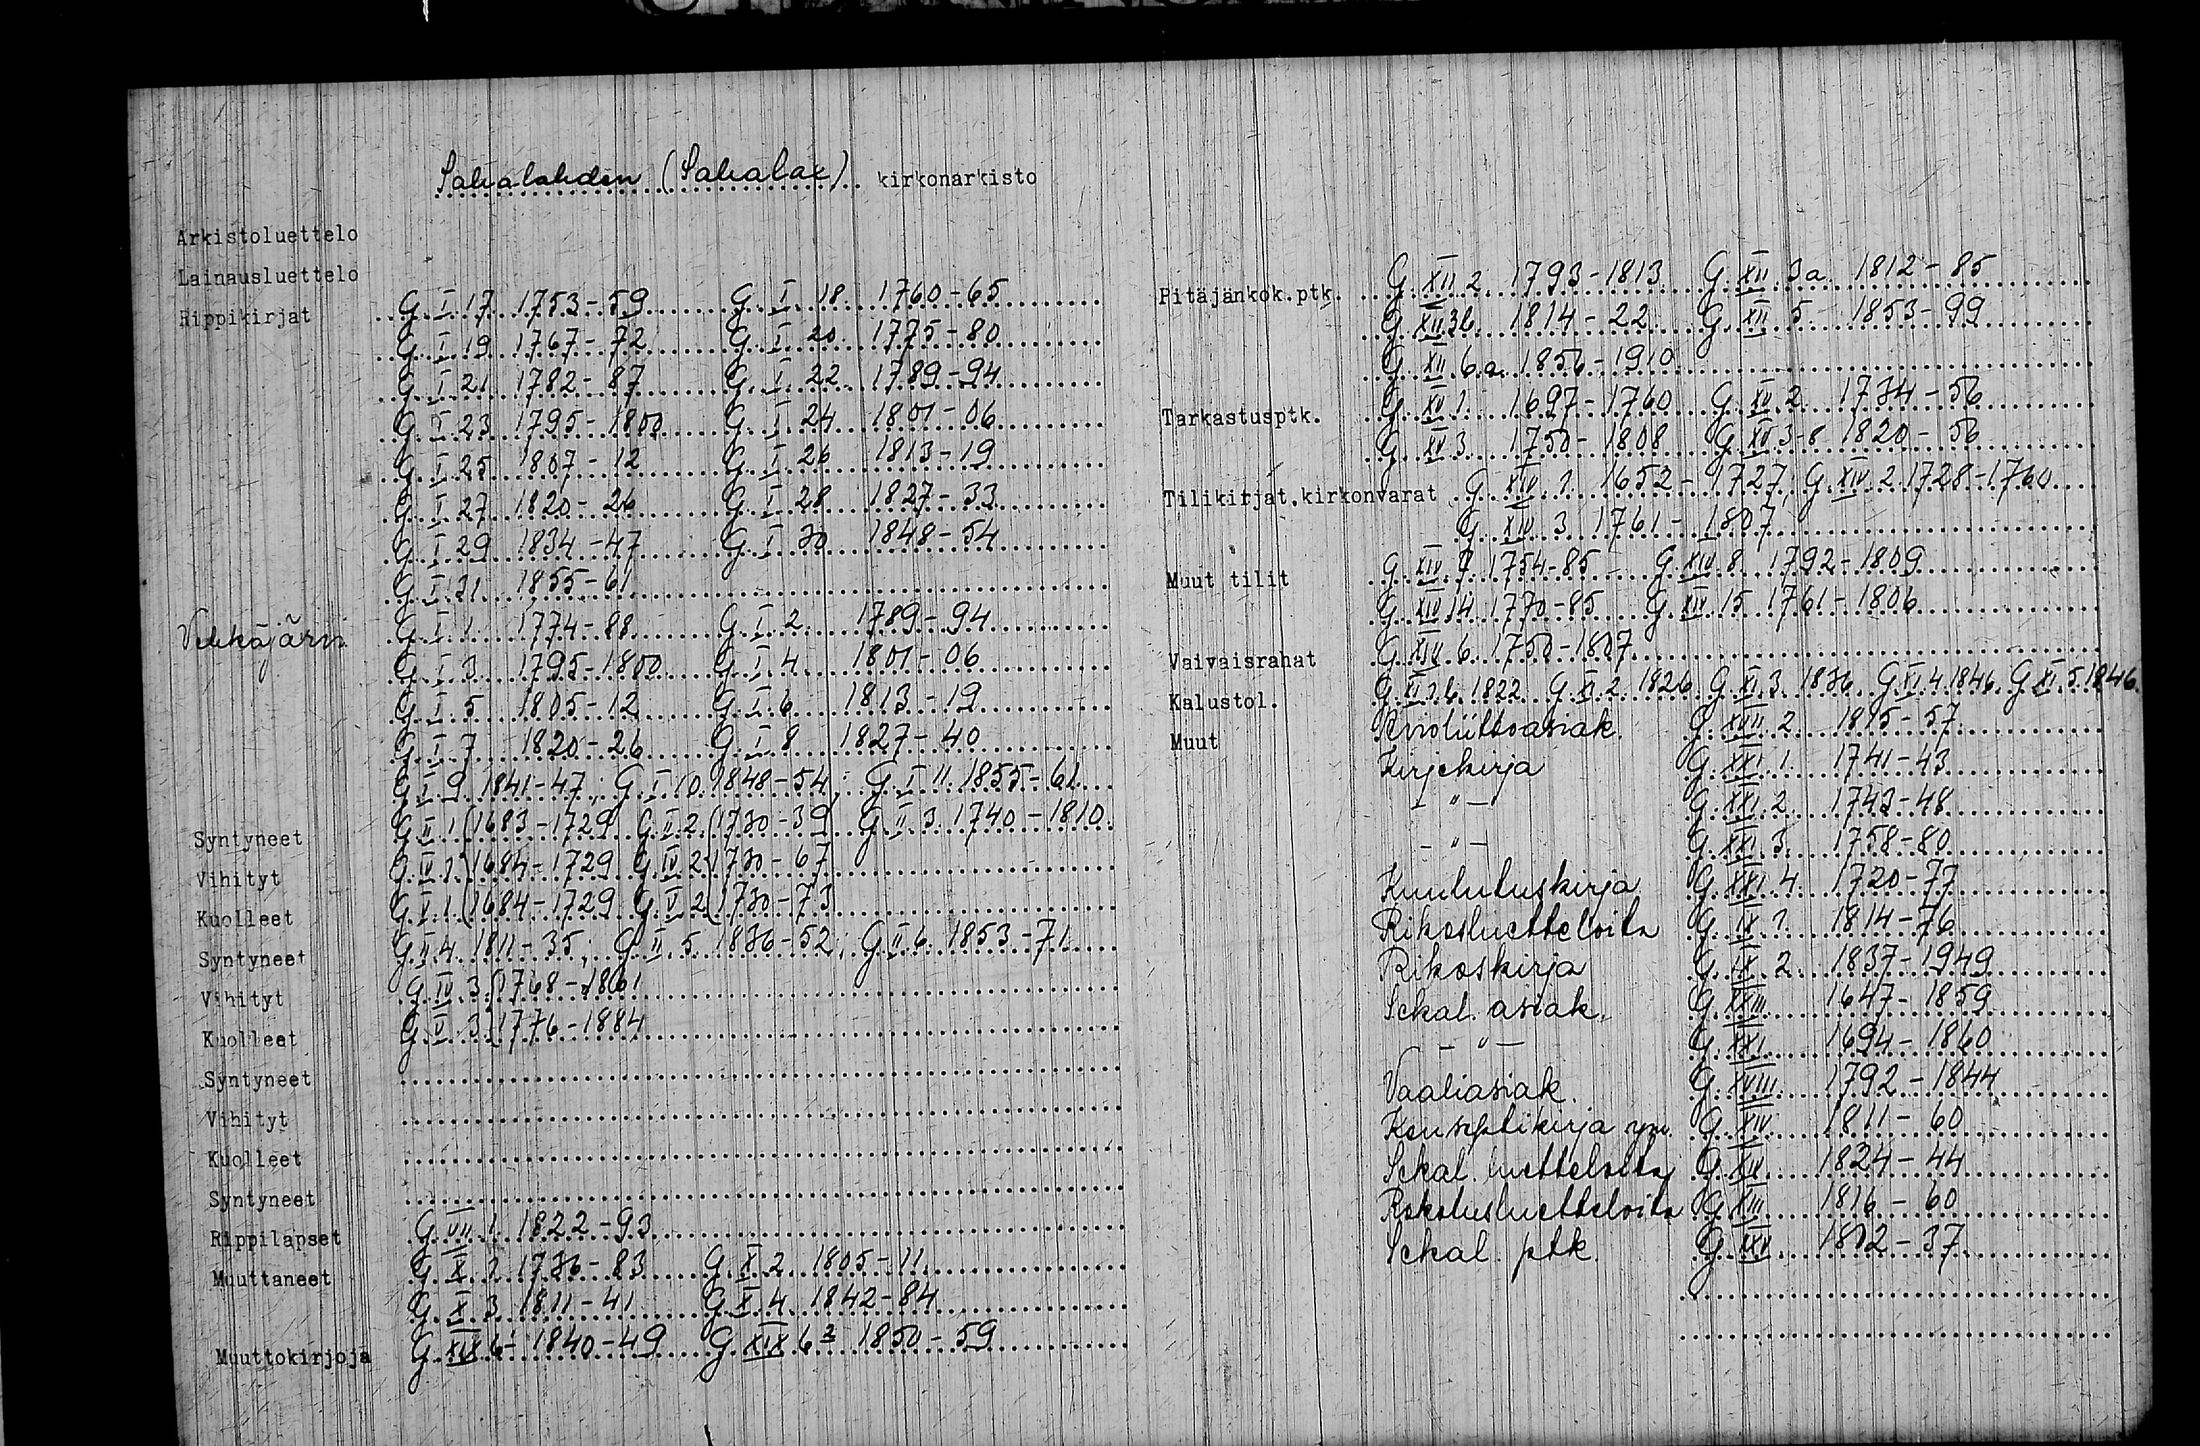 Sahalahden (Sahalax) kirkonarkisto
Arkistoluettelo
Lainausluettelo
Rippikirjat G I 17 1753-59 G I 18 1760-65
G I 19 1767-72 G I 20 1775-80
G I 21 1782-87 G I 22 1789-94
G I 23 1795-1800 G I 24 1801-06
G I 25 1807-12 G I 26 1813-19
G I 27 1820-26 G I 28 1827-33
G I 29 1834-47 G I 30 1848-54
G I 31 1855-61
Vehkajärvi G I 1 1774-88 G I 2 1789-94
G I 3 1795-1800 G I 4 1801-06
G I 5 1805-12 G I 6 1813-19
G I 7 1820-26 G I 8 1827-40
G I 9 1841-47; G I 10 1848-54; G I 11 1855-61
Syntyneet G II 1 (1683-1729 G II 2 (1730-39 G II 3 1740-1810
Vihityt G IV 1 (1684-1729 G IV 2 (1730-67
Kuolleet G V 1 (1684-1729 G V 2 (1730-73
Syntyneet G II 4 1811-35; G II 5 1836-52; G II 6 1853-71
Vihityt G IV 3 (1768-1861
Kuolleet G V 3 (1776-1884
Syntyneet
Vihityt
Kuolleet
Syntyneet
Rippilapset G VII 1 1822-93
Muuttaneet G X 1 1736-83 G X 2 1805-11
G X 3 1811-41 G X 4 1842-84
Muuttokirjoja G XIX 6¹ 1840-49 G XIX 6² 1850-59
Pitäjänkok.ptk. G XII 2 1793-1813 G XII 3a 1812-85
G XII 3b 1814-22 G XII 5 1853-99
G XII 6a 1856-1910
Tarkastusptk. G XV 1 1697-1760 G XV 2 1734-56
G XV 3 1750-1808 G XV 3-8 1820-56
Tilikirjat, kirkonvarat G XIV 1 1652-1727, G XIV 2 1728-1760
G XIV 3 1761-1807
Muut tilit G XIV 7 1754-85 G XIV 8 1792-1809
G XIV 14 1770-85 G XIV 15 1761-1806
Vaivaisrahat G XIV 6 1750-1807
Kalustol. G XI 1b 1822 G XI 2 1826 G XI 3 1836 G XI 4 1846 G XI 5 1846
Muut Avioliittoasiak. G XVII 2 1815-57
Kirjekirja G XXI 1 1741-43
- " - G XXI 2 1743-48
- " - G XXI 3 1758-80
Kuulutuskirja G XXI 4 1720-77
Rikosluetteloita G IX 1 1814-76
Rikoskirja G IX 2 1837-1949
Sekal. asiak. G XXIII 1647-1859
- " - G XXI 1694-1860
Vaaliasiak. G XVIII 1792-1844
Konseptikirja ym. G XIV 1811-60
Sekal. luetteloita G XV 1824-44
Rokotusluetteloita G XIII 1816-60
Sekal. ptk. G XXV 1802-37